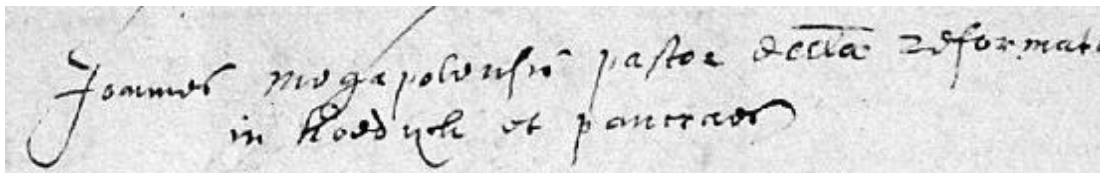 Joannes megapolensis pastor eccla reformata
in Koedijck et pancraes